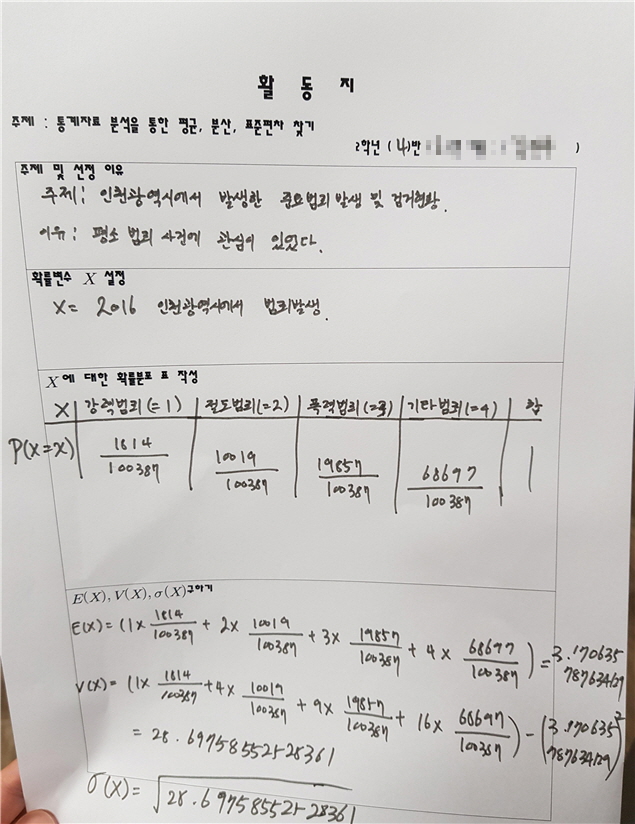 활 동 지
주제 : 통계자료 분석을 통한 평균, 분산, 표준편차 찾기
2학년 (4)반 )
주제 및 선정 이유
주제: 인천광역시에서 발생한 중요범죄 발생 및 검거현황.
이유: 평소 범죄 사건에 관심이 있었다.
확률변수 X 설정
X= 2016 인천광역시에서 범죄발생.
X에 대한 확률분포 표 작성
X 강력범죄(=1) 절도범죄(=2) 폭력범죄(=3) 기타범죄(=4) 합
P(X=x) 1814/100387 10019/100387 19857/100387 68697/100387 1
E(X), V(X), σ(X)구하기
E(X)= (1× 1814/100387 + 2× 10019/100387 + 3× 19857/100387 + 4× 68697/100387) = 3.170635787634129
V(X)= (1× 1814/100387 + 4× 10019/100387 + 9× 19857/100387 + 16× 68697/100387) - (3.170635787634129)²
= 28.69758552528361
σ(X)= √28.69758552528361